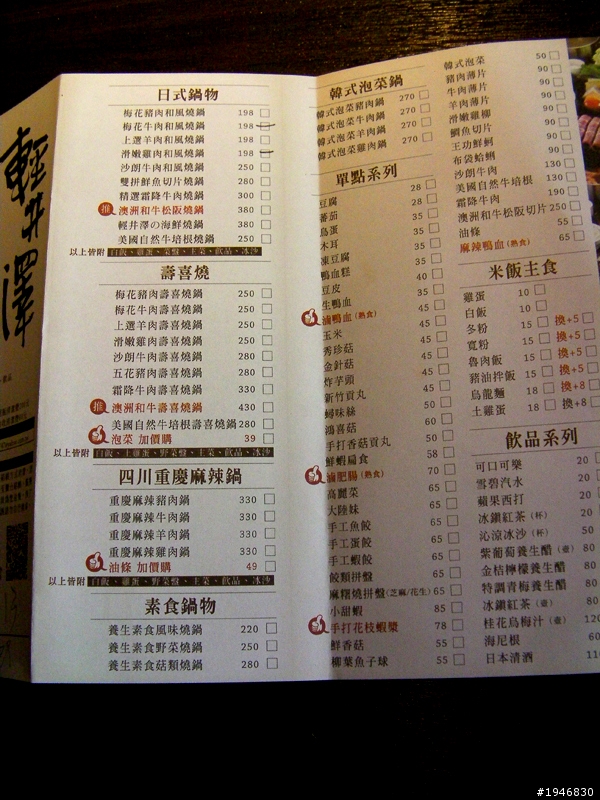 輕井澤
日式鍋物
梅花豬肉和風燒鍋 198
梅花牛肉和風燒鍋 198
上選羊肉和風燒鍋 198
滑嫩雞肉和風燒鍋 198
沙朗牛肉和風燒鍋 250
雙拼鮮魚切片燒鍋 280
精選霜降牛肉燒鍋 300
推 澳洲和牛松阪燒鍋 380
輕井澤の海鮮燒鍋 380
美國自然牛培根燒鍋 250
以上皆附 白飯、雞蛋、菜盤、主菜、飲品、冰沙
壽喜燒
梅花豬肉壽喜燒鍋 250
梅花牛肉壽喜燒鍋 250
上選羊肉壽喜燒鍋 250
滑嫩雞肉壽喜燒鍋 250
沙朗牛肉壽喜燒鍋 280
五花豬肉壽喜燒鍋 280
霜降牛肉壽喜燒鍋 330
推 澳洲和牛壽喜燒鍋 430
美國自然牛培根壽喜燒鍋 280
泡菜 加價購 39
以上皆附 白飯、雞蛋、野菜盤、主菜、飲品、冰沙
四川重慶麻辣鍋
重慶麻辣豬肉鍋 330
重慶麻辣牛肉鍋 330
重慶麻辣羊肉鍋 330
重慶麻辣雞肉鍋 330
油條 加價購 49
以上皆附 白飯、雞蛋、野菜盤、主菜、飲品、冰沙
素食鍋物
養生素食風味燒鍋 220
養生素食野菜燒鍋 250
養生素食菇類燒鍋 280
韓式泡菜鍋
韓式泡菜豬肉鍋 270
韓式泡菜牛肉鍋 270
韓式泡菜羊肉鍋 270
韓式泡菜雞肉鍋 270
單點系列
豆腐 28
蕃茄 28
鳥蛋 35
木耳 35
凍豆腐 35
鴨血糕 40
豆皮 35
生鴨血 35
滷鴨血(熟食) 45
玉米 45
秀珍菇 45
金針菇 45
炸芋頭 45
新竹貢丸 45
蟳味絲 50
鴻喜菇 50
手打香菇貢丸 50
鮮蝦扁食 58
滷肥腸(熟食) 70
高麗菜 65
大陸妹 65
手工魚餃 60
手工蛋餃 60
手工蝦餃 60
餃類拼盤 65
麻糬燒拼盤(芝麻/花生) 65
小甜蝦 85
手打花枝蝦漿 78
鮮香菇 55
柳葉魚子球 55
韓式泡菜 50
豬肉薄片 80
牛肉薄片 80
羊肉薄片 80
滑嫩雞柳 80
鯛魚切片 80
王功鮮蚵 80
布袋蛤蜊 80
沙朗牛肉 130
美國自然牛培根 130
霜降牛肉 190
澳洲和牛松阪切片 250
油條 65
麻辣鴨血(熟食) 55
米飯主食
雞蛋 10
白飯 10
冬粉 15 換+5
寬粉 15 換+5
魯肉飯 15 換+5
豬油拌飯 15 換+5
烏龍麵 18 換+8
土雞蛋 18 換+8
飲品系列
可口可樂 20
雪碧汽水 20
蘋果西打 20
冰鎮紅茶(杯) 20
沁涼冰沙(杯) 50
紫葡萄養生醋(壺) 80
金桔檸檬養生醋 80
特調青梅養生醋 80
冰鎮紅茶(壺) 80
桂花烏梅汁(壺) 120
海尼根 60
日本清酒
#1946830